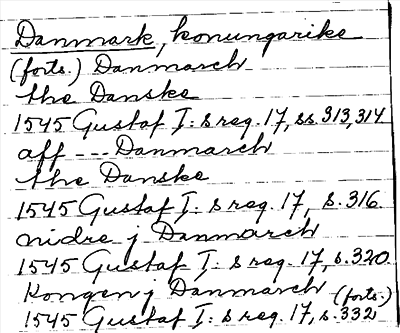 Danmark, konungarike
(forts.) Danmarch
the Danske
1545 Gustaf I: s reg. 17, ss. 313, 314
aff --- Danmarch
the Danske
1545 Gustaf I: s reg. 17, s. 316
nidre j Danmarch
1545 Gustaf I: s reg. 17, s. 320
Kongen j Danmarch (forts.)
1545 Gustaf I: s reg. 17, s. 332